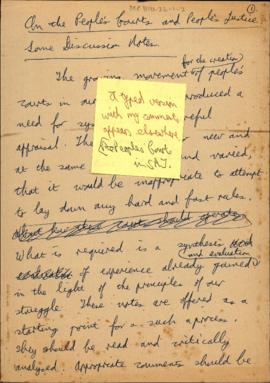 On the People's Courts and People's Justice
Some Discussion Notes.
for the creation
The growing movement of people's
courts in produced a
need for sy careful
appraisal. The new and
at the same varied,
that it would be inappropriate to attempt
to lay down any hard and fast rules.
What is required is a synthesis and evaluation
of experience already gained
in the light of the principles of our
struggle. These notes are offered as a
starting point for such a process.
They should be read and critically
analysed. Appropriate comments should be
A typed version
with my comments
appears elsewhere
Peoples Court
in S.A.